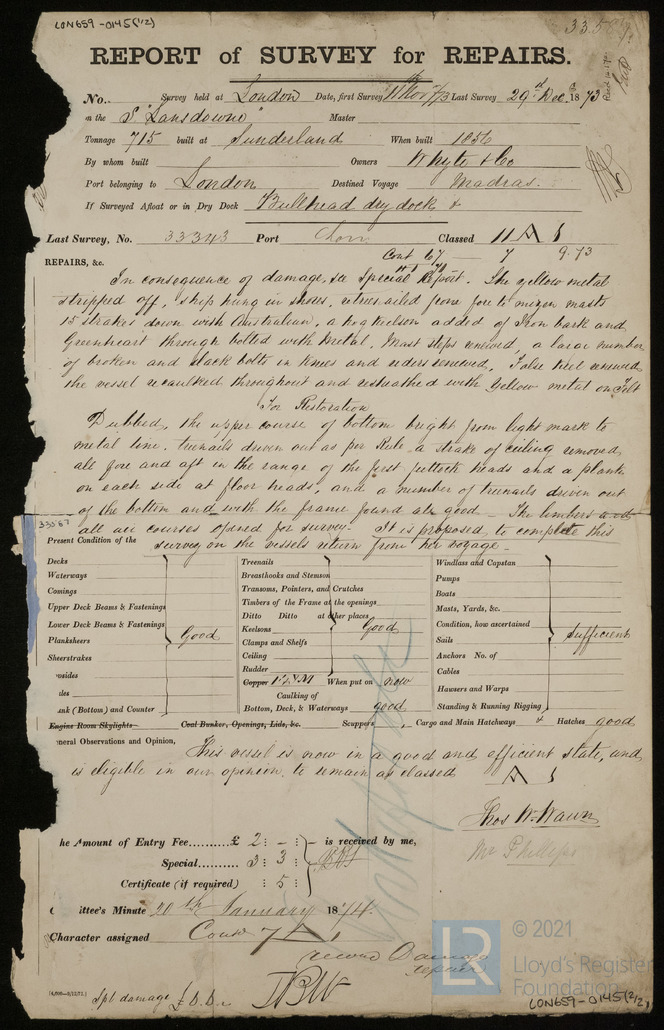 LON659-0145(1/2)
REPORT of SURVEY for REPAIRS.
No. Survey held at London Date, first Survey 11th Nov /73 Last Survey 29th Dec. 1873
on the S "Lansdowne" Master
Tonnage 715 built at Sunderland When built 1856
By whom built Owners Whyte & Co
Port belonging to London Destined Voyage Madras.
If Surveyed Afloat or in Dry Dock Bullhead dry dock &
Last Survey, No. 33343 Port Lon Classed 11 A 1
Cont 67 7 9.73
REPAIRS, &c.
In consequence of damage, see Special Report. The yellow metal
stripped off, ship hung in shores, retreenailed from fore to mizen masts
15 strakes down with Australian, a hog keelson added of Iron bark and
Greenheart through bolted with metal. Mast steps renewed, a large number
of broken and slack bolts in knees and riders renewed, False keel renewed
the vessel recaulked throughout and resheathed with Yellow metal on Felt
For Restoration
Dubbed, the upper course of bottom bright from light mark to
metal line, treenails driven out as per Rule a strake of ceiling removed
all fore and aft in the range of the first futtock heads and a plank
on each side at floor heads, and a number of treenails driven out
of the bottom and with the frame found all good - The timbers and
all air courses opened for survey. It is proposed to complete this
33067
Present Condition of the survey on the vessels return from her voyage -
Decks Treenails Windlass and Capstan
Waterways Breasthooks and Stemson Pumps
Comings Transoms, Pointers, and Crutches Boats
Upper Deck Beams & Fastenings Timbers of the Frame at the openings Masts, Yards, &c.
Lower Deck Beams & Fastenings Ditto Ditto at other places Condition, how ascertained
Planksheers Good Keelsons Good Sails sufficient
Sheerstrakes Clamps and Shelfs Anchors No. of
psides Ceiling Cables
les Rudder Hawsers and Warps
ank (Bottom) and Counter Copper Y.M When put on now Standing & Running Rigging
Caulking of
Bottom, Deck, & Waterways good
Engine Room Skylights Coal Bunker, Openings, Lids, &c. Scuppers, Cargo and Main Hatchways & Hatches good
neral Observations and Opinion, This vessel is now in a good and efficient state, and
is eligible in our opinion to remain as classed A 1
Thos W. Wawn
Mr Phillips
he Amount of Entry Fee £ 2 : - : is received by me,
Special 3 : 3 :
Certificate (if required) : 5 :
ittee's Minute 20th January 1874.
Character assigned Contd 7 A 1
record Damage
repairs
Spl damage £
© 2021
LR
Lloyd's Register
Foundation
LON659-0145(2/2)